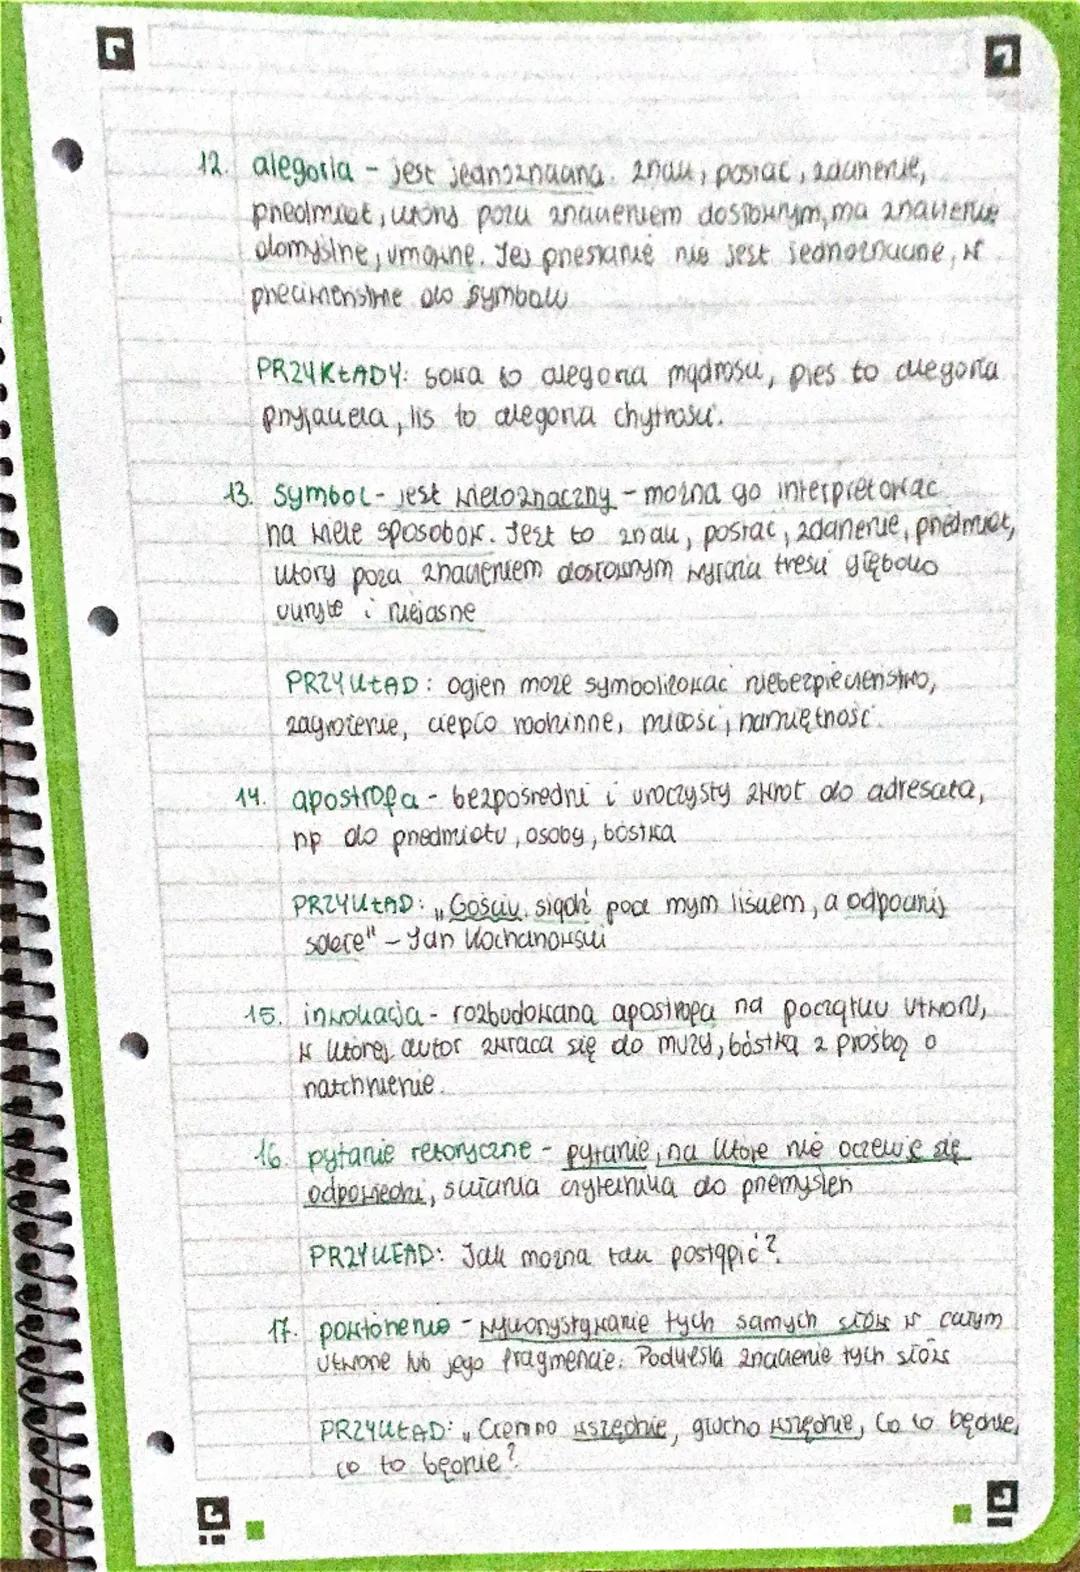 12. alegoria - jest jednoznaczna. znak, postać, zdarzenie,
przedmiot, który poza znaczeniem dosłownym, ma znaczenie
domyślne, umowne. Jej przesłanie nie jest jednoznaczne, w
przeciwieństwie do symbolu
PRZYKŁADY: sowa to alegoria mądrości, pies to alegoria
przyjaciela, lis to alegoria chytrości.
13. symbol - jest wieloznaczny - można go interpretować
na wiele sposobów. Jest to znak, postać, zdarzenie, przedmiot,
który poza znaczeniem dosłownym wyraża treści głęboko
ukryte i niejasne
PRZYKŁAD: ogień może symbolizować niebezpieczeństwo,
zagrożenie, ciepło rodzinne, miłość, namiętność.
14. apostrofa - bezpośredni i uroczysty zwrot do adresata,
np do przedmiotu, osoby, bóstwa
PRZYKŁAD: „Gościu, siądź pod mym liściem, a odpocznij
sobie" - Jan Kochanowski
15. inwokacja - rozbudowana apostrofa na początku utworu,
w której autor zwraca się do muzy, bóstwa z prośbą o
natchnienie.
16. pytanie retoryczne - pytanie, na które nie oczekuje się
odpowiedzi, skłania czytelnika do przemyśleń
PRZYKŁAD: Jak można tak postąpić?
17. powtórzenie - wykorzystywanie tych samych słów w całym
utworze lub jego fragmencie. Podkreśla znaczenie tych słów
PRZYKŁAD: „Ciemno wszędzie, głucho wszędzie, Co to będzie,
co to będzie?